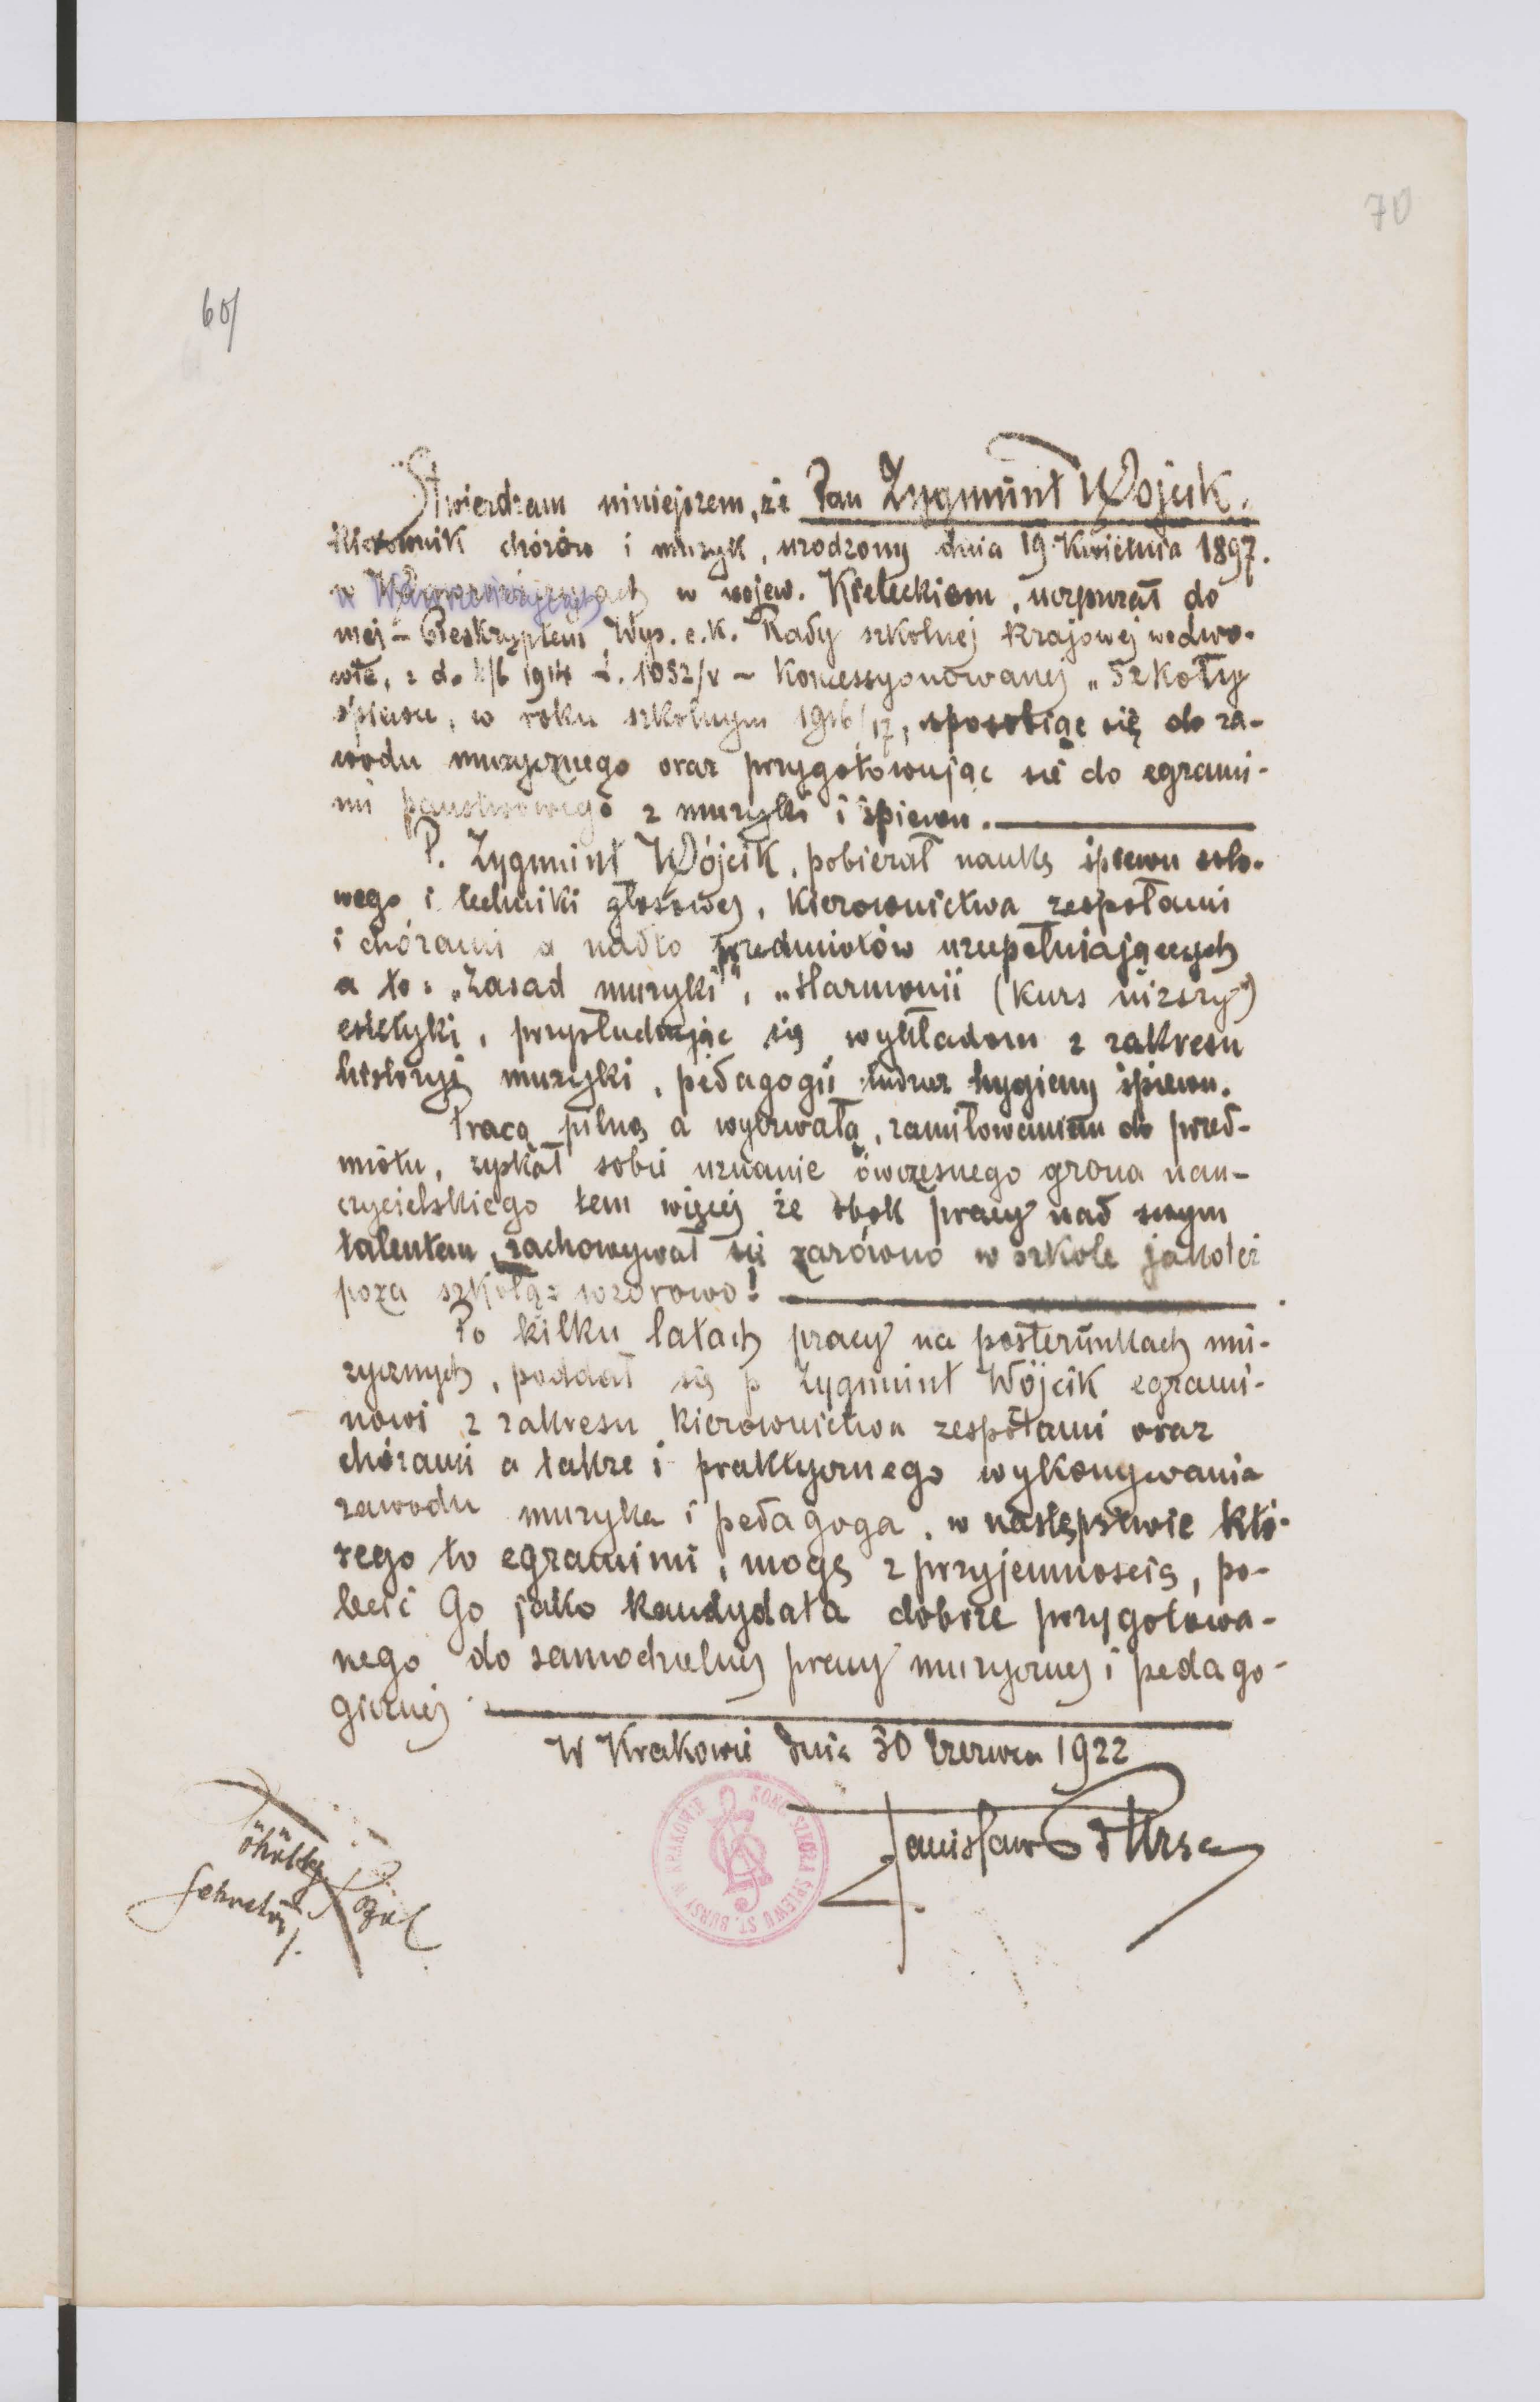 70
60/
Stwierdzam niniejszem, że Pan Zygmunt Wójcik.
kierownik chórów i muzyk, urodzony dnia 19 Kwietnia 1897.
w w wojew. Kieleckiem, uczęszczał do
mej – Reskryptem Wys. c.k. Rady szkolnej krajowej we Lwo-
wie, z d. 1914 L. 1052/V – koncessyonowanej „Szkoły
śpiewu, w roku szkolnym 1916/17, sposobiąc się do za-
wodu muzycznego oraz przygotowując się do egzami-
nu państwowego z muzyki i śpiewu.
P. Zygmunt Wójcik, pobierał naukę śpiewu solo-
wego i techniki głosowej, kierownictwa zespołami
i chórami a nadto przedmiotów uzupełniających
a to: „Zasad muzyki", „Harmonii (kurs niższy")
estetyki, przysłuchując się wykładom z zakresu
historyi muzyki, pedagogii tudzież hygieny śpiewu.
Pracą pilną a wytrwałą, zamiłowaniem do przed-
miotu, zyskał sobie uznanie ówczesnego grona nau-
czycielskiego tem więcej że obok pracy nad swym
talentem, zachowywał się zarówno w szkole jakoteż
poza szkołą: wzorowo!
Po kilku latach pracy na posterunkach mu-
zycznych, poddał się p Zygmunt Wójcik egzami-
nowi z zakresu kierownictwa zespołami oraz
chórami a także i praktycznego wykonywania
zawodu muzyka i pedagoga, w następstwie któ-
rego to egzaminu, mogę z przyjemnością, po-
lecić Go jako kandydata dobrze przygotowa-
nego do samodzielnej pracy muzycznej i pedago-
gicznej
W Krakowie dnia 30 Czerwca 1922
KONC. SZKOŁA ŚPIEWU ST. BURSY W KRAKOWIE
Stanisław Bursa
Sekretarz